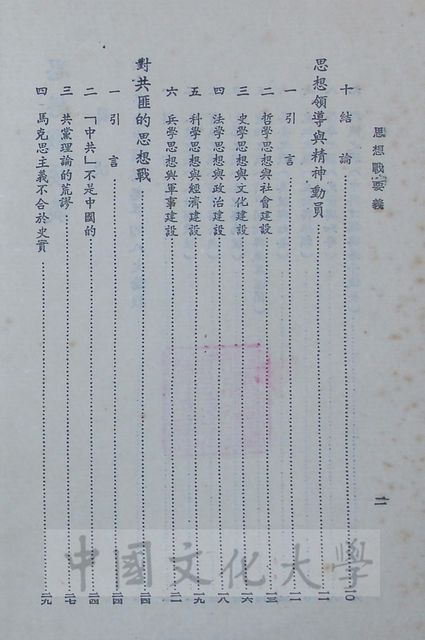 思想戰要義
二
十 結 論 二〇
思想領導與精神動員 二一
一 引 言 二一
二 哲學思想與社會建設
三 史學思想與文化建設 一六
四 法學思想與政治建設 一八
五 科學思想與經濟建設 一九
六 兵學思想與軍事建設 二一
對共匪的思想戰 二四
一 引 言 二四
二 「中共」不是中國的 二四
三 共黨理論的荒謬 二七
四 馬克思主義不合於史實 二九
中國文化大學